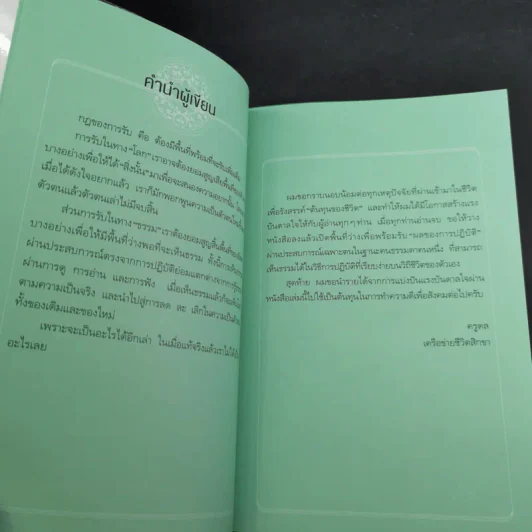 คำนำผู้เขียน
กฎของการรับ คือ ต้องมีพื้นที่พร้อมที่จะรับเพิ่มเติม
การรับในทาง“โลก”เราอาจต้องยอมสูญเสียพื้นที่ของสิ่ง
บางอย่างเพื่อให้ได้“สิ่งนั้น”มาเพื่อจะสนองความอยากนั้น
เมื่อได้ดังใจอยากแล้ว เราก็มักพอกพูนความเป็นตัวตน
ตัวตนแล้วตัวตนเล่าไม่มีจบสิ้น
ส่วนการรับในทาง“ธรรม”เราต้องยอมสูญสิ้นพื้นที่ของสิ่ง
บางอย่างเพื่อให้มีพื้นที่ว่างพอที่จะเห็นธรรม ทั้งนี้การ
ผ่านประสบการณ์ตรงจากการปฏิบัติย่อมแตกต่างจากการ
ผ่านการดู การอ่าน และการฟัง เมื่อเห็นธรรมแล้วก็จะ
ตามความเป็นจริง และนำไปสู่การลด ละ เลิกในความเป็นตัวตน
ทั้งของเดิมและของใหม่
เพราะจะเป็นอะไรได้อีกเล่า ในเมื่อแท้จริงแล้วเราไม่ได้
อะไรเลย
ผมขอกราบนอบน้อมต่อทุกเหตุปัจจัยที่ผ่านเข้ามาในชีวิต
เพื่อรังสรรค์“ต้นทุนของชีวิต” และทำให้ผมได้มีโอกาสสร้างแรง
บันดาลใจให้กับผู้อ่านทุกๆท่าน เมื่อทุกท่านอ่านจบ ขอให้วาง
หนังสือลงแล้วเปิดพื้นที่ว่างเพื่อพร้อมรับ “ผลของการปฏิบัติ”
ผ่านประสบการณ์เฉพาะตนในฐานะคนธรรมดาคนหนึ่ง ที่สามารถ
เห็นธรรมได้ในวิถีการปฏิบัติที่เรียบง่ายบนวิถีชีวิตของตัวเอง
สุดท้าย ผมขอนำรายได้จากการแบ่งปันแรงบันดาลใจผ่าน
หนังสือเล่มนี้ไปใช้เป็นต้นทุนในการทำความดีเพื่อสังคมต่อไปครับ
ครูดล
เครือข่ายชีวิตสิกขา